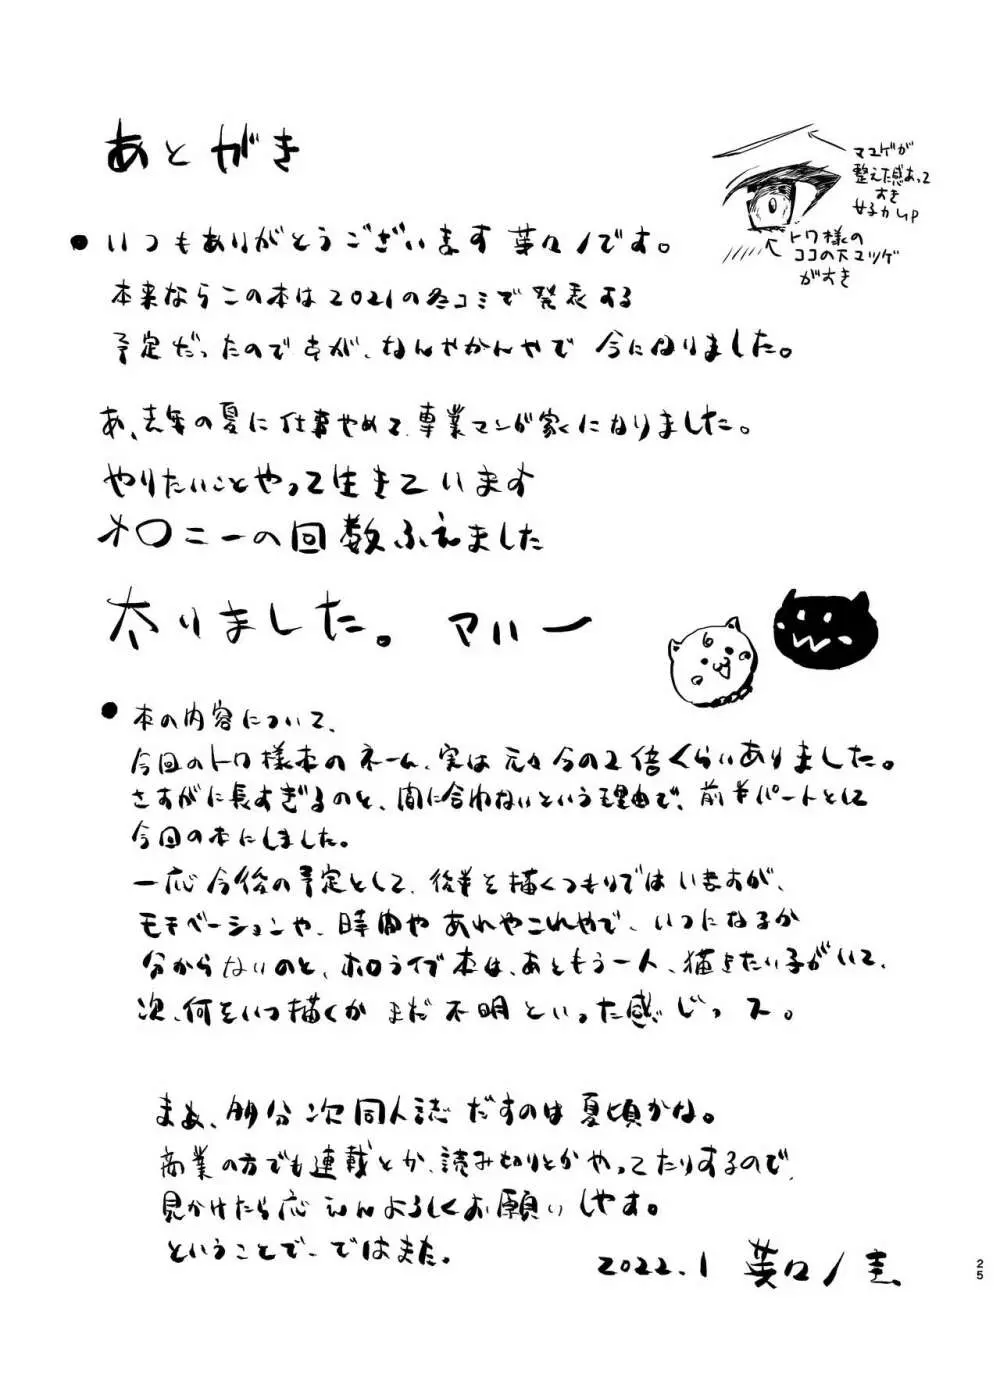 あとがき
マユゲが
整えた感あって
すき
女子力UP
トワ様の
ココの下マツゲ
がすき
いつもありがとうございます 葉々ノです。
本来ならこの本は2021の冬コミで発表する
予定だったのですが、なんやかんやで 今になりました。
あ、去年の夏に仕事やめて、専業マンガ家になりました。
やりたいことやって生きています
オ〇ニーの回数ふえました
太りました。 マハー
本の内容について、
今回のトワ様本のネーム、実は元々今の2倍くらいありました。
さすがに長すぎるのと、間に合わないという理由で、前半パートとして
今回の本にしました。
一応今後の予定として、後半を描くつもりではいますが、
モチベーションや、時間や あれやこれやで、いつになるか
分からないのと、ホロライブ本は、あともう一人、描きたい子がいて、
次、何をいつ描くか まだ不明といった感じっス。
まぁ、多分次同人誌だすのは夏頃かな。
商業の方でも連載とか、読み切りとかやってたりするので、
見かけたら応えんよろしくお願いしやす。
ということで、ではまた。
2022.1 葉々ノ
25